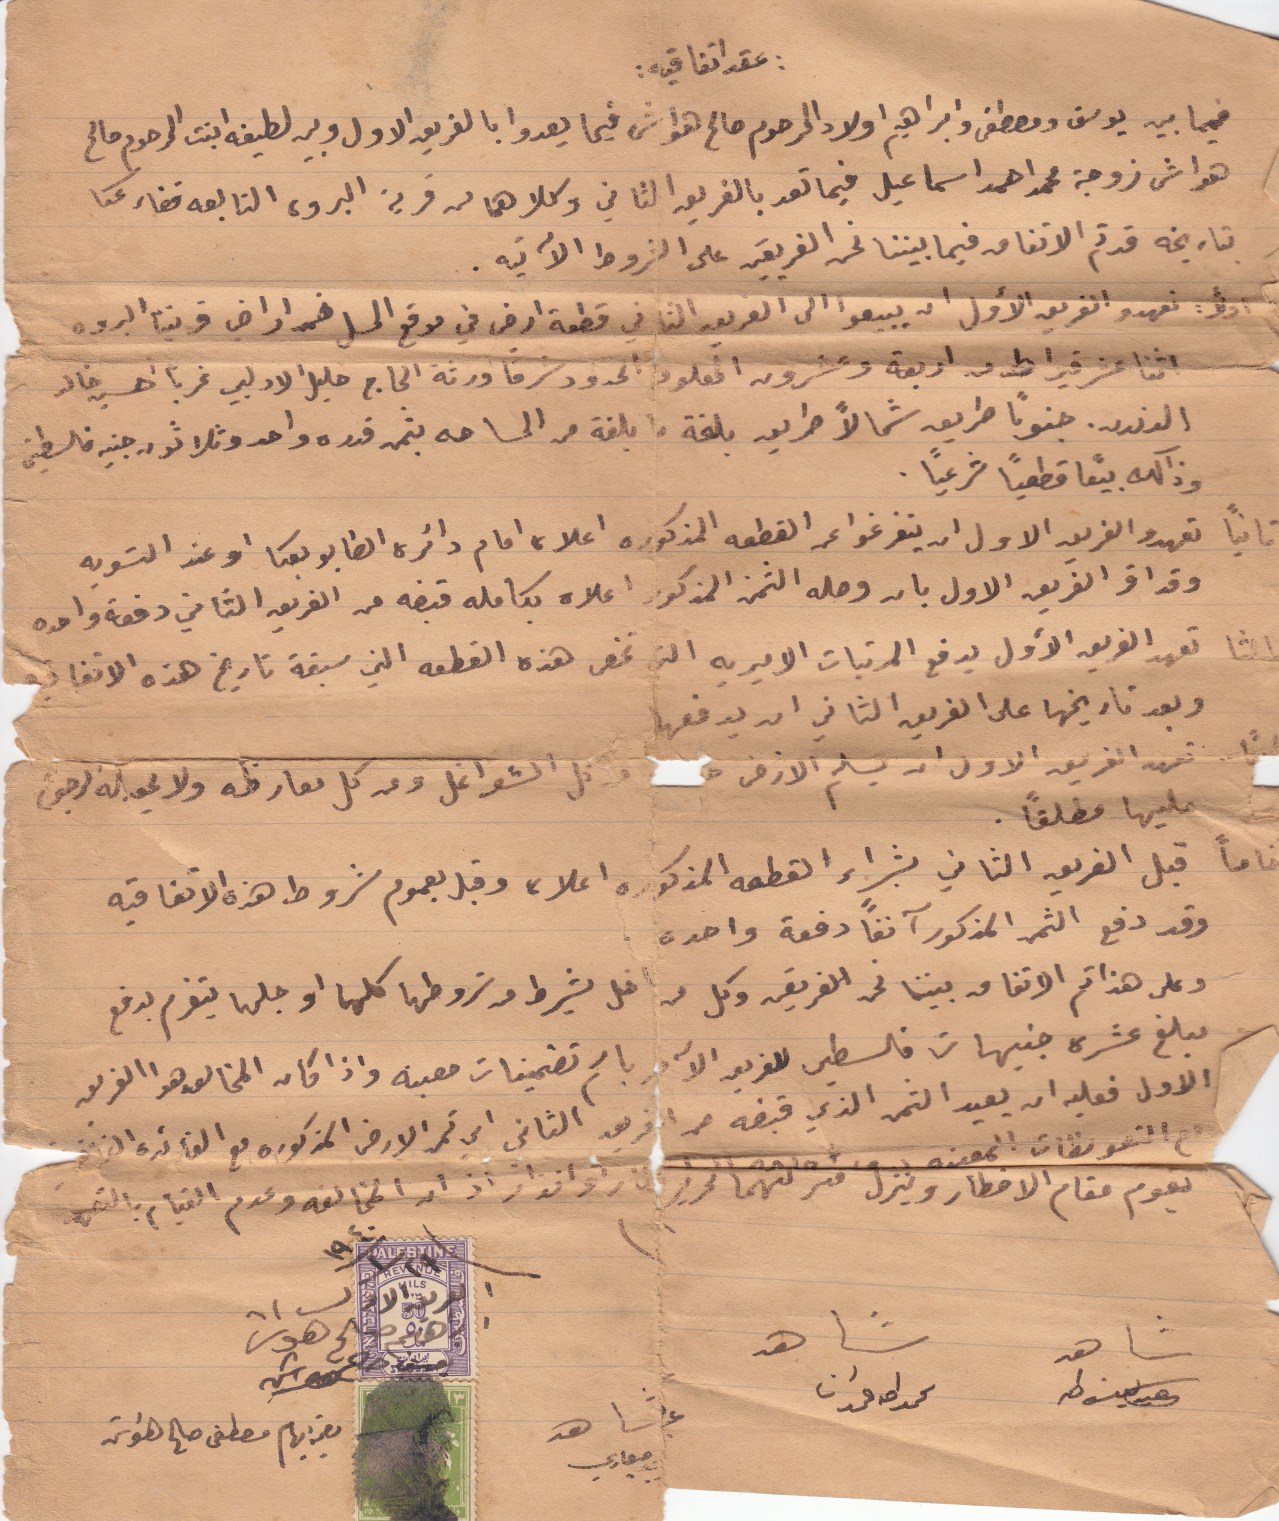 : عقد اتفاقيه :
فيما بين يوسف ومصطفى وابراهيم اولاد المرحوم صالح هواش فيما يعدوا بالفريق الاول وبين لطيفه ابنت المرحوم صالح
هواش زوجة محمد احمد اسماعيل فيما تعد بالفريق الثاني وكلاهما من قرية البروه التابعه قضاء عكا
بتاريخه قد تم الاتفاق فيما بيننا نحن الفريقين على الشروط الآتيه .
اولاً : تعهدو الفريق الأول ان يبيعوا الى الفريق الثاني قطعة ارض في موقع الحسل ضمن اراضي قريتنا البروه
اثنا عشر قيراط من اربعة وعشرون المحدود شرقاً ورثة الحاج خليل الادلبي غرباً حسين خالد
جنوباً طريق شمالاً طريق بلغة ما بلغة من المساحه بثمن قدره واحد وثلاثون جنيه فلسطيني
وذالك بيعاً قطعياً شرعياً .
ثانياً تعهدو الفريق الاول ان يتفرغوا عن القطعه المذكوره اعلاه امام دائرة الطابو بعكا او عند التسويه
وقد اقر الفريق الاول بان وصله الثمن المذكور اعلاه بكامله قبضه من الفريق الثاني دفعة واحده
ثالثا تعهد الفريق الأول بدفع المرتبات الاميريه التي تخص هذه القطعه التي سبقة تاريخ هذه الاتفاقيه
وبعد تاريخها على الفريق الثاني ان يدفعها
تعهد الفريق الاول ان يسلم الارض من كل الشواغل ومن كل معارظه ولا يحق له الرجوع
عليها مطلقاً .
خامساً قبل الفريق الثاني بشراء القطعه المذكوره اعلاه وقبل بعموم شروط هذه الاتفاقيه
وقد دفع الثمن المذكور آنفاً دفعة واحده
وعلى هذا تم الاتفاق بيننا نحن الفريقين وكل من اخل بشرط من شروطها كلها او جلها يتغرم بدفع
مبلغ عشرة جنيهات فلسطيني للفريق الآخر باسم تضمينات معينه واذا كان المخالف هو الفريق
الاول فعليه ان يعيد الثمن الذي قبضه من الفريق الثاني اي ثمن الارض المذكوره مع الفائدة
مع التعويظات المعينه
يقوم مقام الاخطار وينزل منزلتهما اذ ان المخالفه وعدم القيام بالتعهد
١٩٤٠
PALESTINE
REVENUE
MILS
50
الفريق الاول
صالح هواش
شاهد
شاهد
محمد طه حمدان
شاهد
بصمة ابهام مصطفى صالح هواش